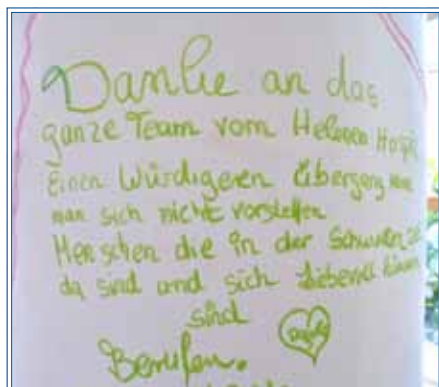 Danke an das
ganze Team vom Helenen Hospiz
Einen Würdigeren Übergang kann
man sich nicht vorstellen
Menschen die in der Schweren Zeit
da sind und sich Liebevoll kümmern
sind
Berufen.